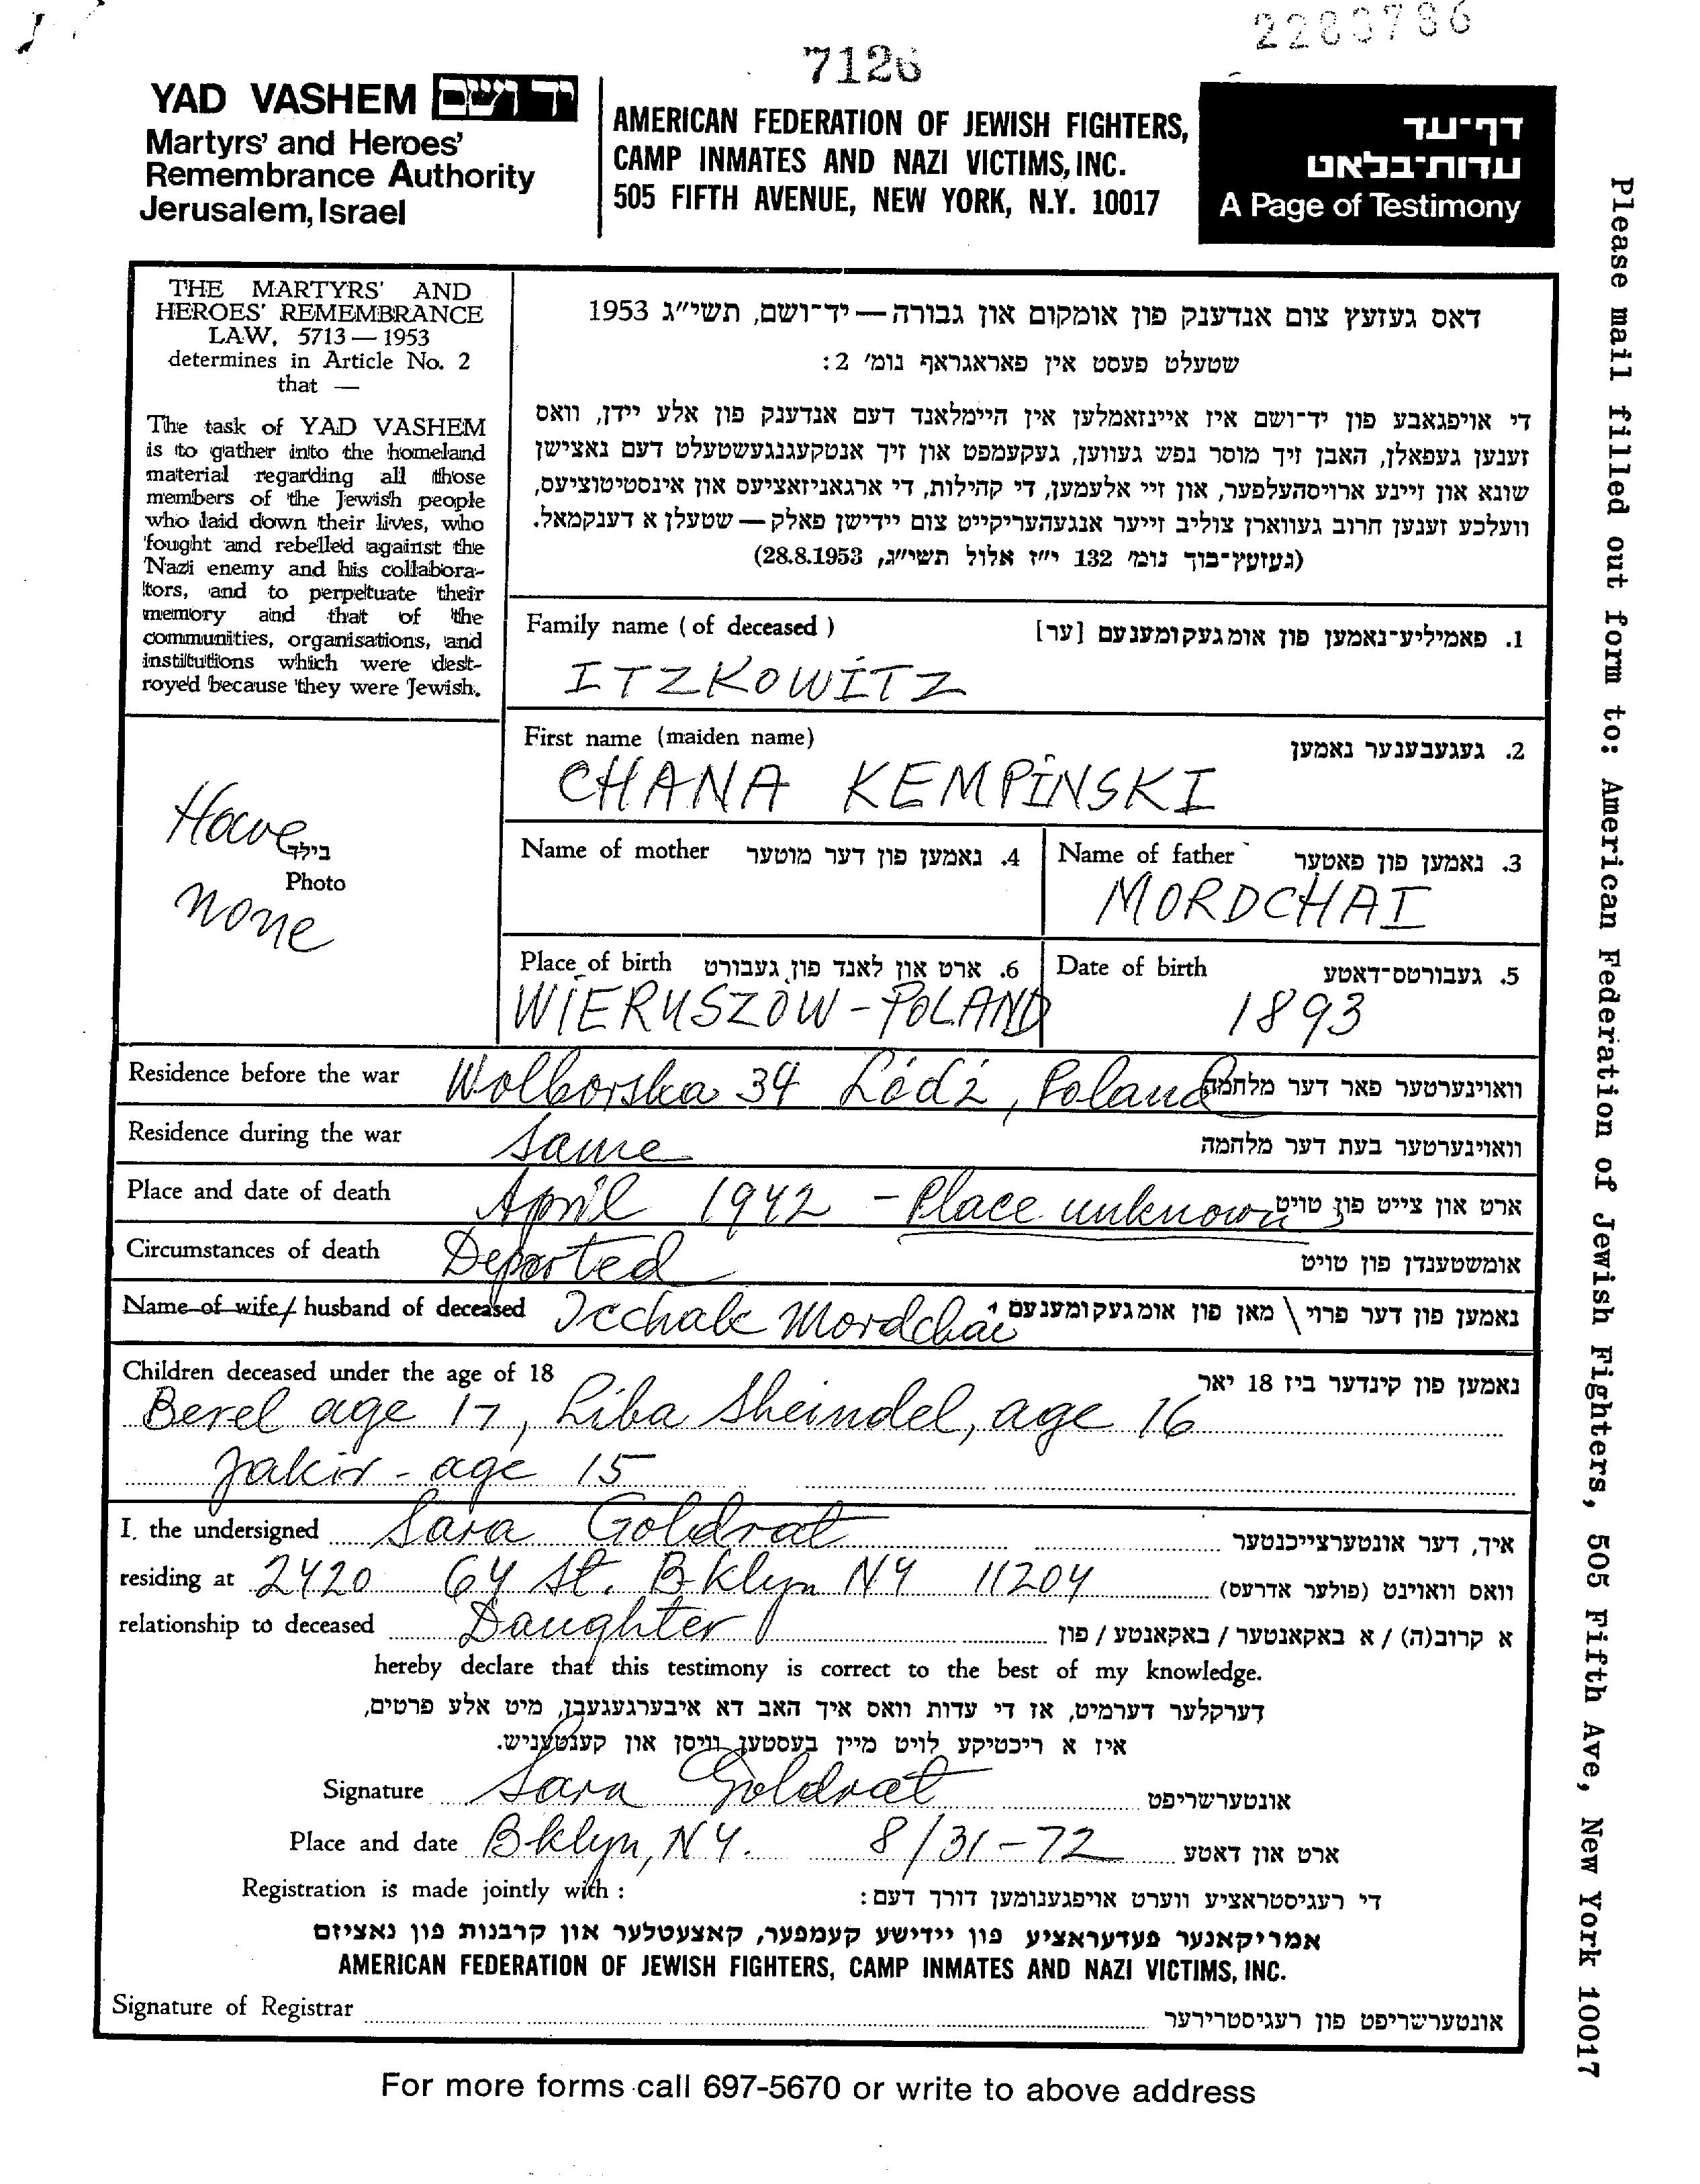 2280786
7126
YAD VASHEM יד ושם
Martyrs' and Heroes'
Remembrance Authority
Jerusalem, Israel
AMERICAN FEDERATION OF JEWISH FIGHTERS,
CAMP INMATES AND NAZI VICTIMS, INC.
505 FIFTH AVENUE, NEW YORK, N.Y. 10017
דף-עד
עדות-בלאט
A Page of Testimony
THE MARTYRS' AND
HEROES' REMEMBRANCE
LAW, 5713 — 1953
determines in Article No. 2
that —
The task of YAD VASHEM
is to gather into the homeland
material regarding all those
members of the Jewish people
who laid down their lives, who
fought and rebelled against the
Nazi enemy and his collabora-
tors, and to perpetuate their
memory and that of the
communities, organisations, and
institutions which were dest-
royed because they were Jewish.
דאס געזעץ צום אנדענק פון אומקום און גבורה — יד-ושם, תשי״ג 1953
שטעלט פעסט אין פאראגראף נומ׳ 2:
די אויפגאבע פון יד-ושם איז איינזאמלען אין היימלאנד דעם אנדענק פון אלע יידן, וואס
זענען געפאלן, האבן זיך מוסר נפש געווען, געקעמפט און זיך אנטקעגנגעשטעלט דעם נאצישן
שונא און זיינע ארויסהעלפער, און זיי אלעמען, די קהילות, די ארגאניזאציעס און אינסטיטוציעס,
וועלכע זענען חרוב געווארן צוליב זייער אנגעהעריקייט צום יידישן פאלק — שטעלן א דענקמאל.
(געזעץ-בוך נומ׳ 132 י״ז אלול תשי״ג, 28.8.1953)
Family name ( of deceased ) 1. פאמיליע-נאמען פון אומגעקומענעם [ער]
ITZKOWITZ
First name (maiden name) 2. געגעבענער נאמען
CHANA KEMPINSKI
Name of mother 4. נאמען פון דער מוטער
Name of father 3. נאמען פון פאטער
MORDCHAI
Place of birth 6. ארט און לאנד פון געבורט
WIERUSZÓW - POLAND
Date of birth 5. געבורטס-דאטע
1893
Have
בילד
Photo
none
Residence before the war Wolborska 34 Łódź, Poland וואוינערטער פאר דער מלחמה
Residence during the war Same וואוינערטער בעת דער מלחמה
Place and date of death April 1942 - Place unknown ארט און צייט פון טויט
Circumstances of death Deported אומשטענדן פון טויט
Name of wife / husband of deceased Icchak Mordchai נאמען פון דער פרוי \ מאן פון אומגעקומענעם
Children deceased under the age of 18 נאמען פון קינדער ביז 18 יאר
Berel age 17, Liba Sheindel, age 16
Jakir - age 15
I. the undersigned Sara Goldrat איך, דער אונטערצייכנטער
residing at 2420 64 St. Bklyn NY 11204 וואס וואוינט (פולער אדרעס)
relationship to deceased Daughter א קרוב(ה) / א באקאנטער / באקאנטע / פון
hereby declare that this testimony is correct to the best of my knowledge.
דערקלער דערמיט, אז די עדות וואס איך האב דא איבערגעגעבן, מיט אלע פרטים,
איז א ריכטיקע לויט מיין בעסטען וויסן און קענטעניש.
Signature Sara Goldrat אונטערשריפט
Place and date Bklyn, NY. 8/31-72 ארט און דאטע
Registration is made jointly with : די רעגיסטראציע ווערט אויפגענומען דורך דעם:
אמריקאנער פעדעראציע פון יידישע קעמפער, קאצעטלער און קרבנות פון נאציזם
AMERICAN FEDERATION OF JEWISH FIGHTERS, CAMP INMATES AND NAZI VICTIMS, INC.
Signature of Registrar אונטערשריפט פון רעגיסטרירער
For more forms call 697-5670 or write to above address
Please mail filled out form to: American Federation of Jewish Fighters, 505 Fifth Ave, New York 10017